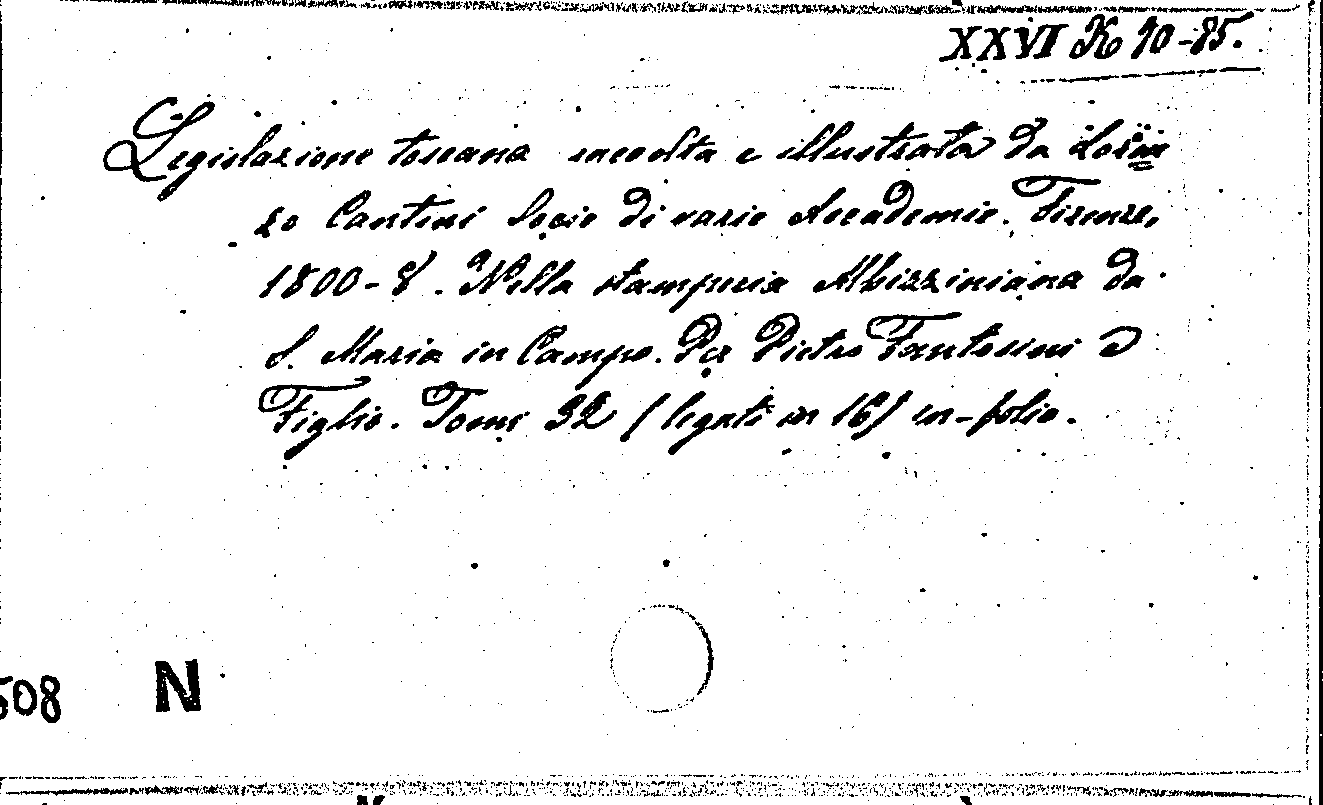 XXVI K 70-85.
Legislazione toscana raccolta e illustrata da Loren
zo Cantini Socio di varie Accademie. Firenze,
1800-8. Nella stamperia Albizziniana da
S. Maria in Campo. Per Pietro Fantosini e
Figlio. Tomi 32 (legati in 16) in-folio.
508 N